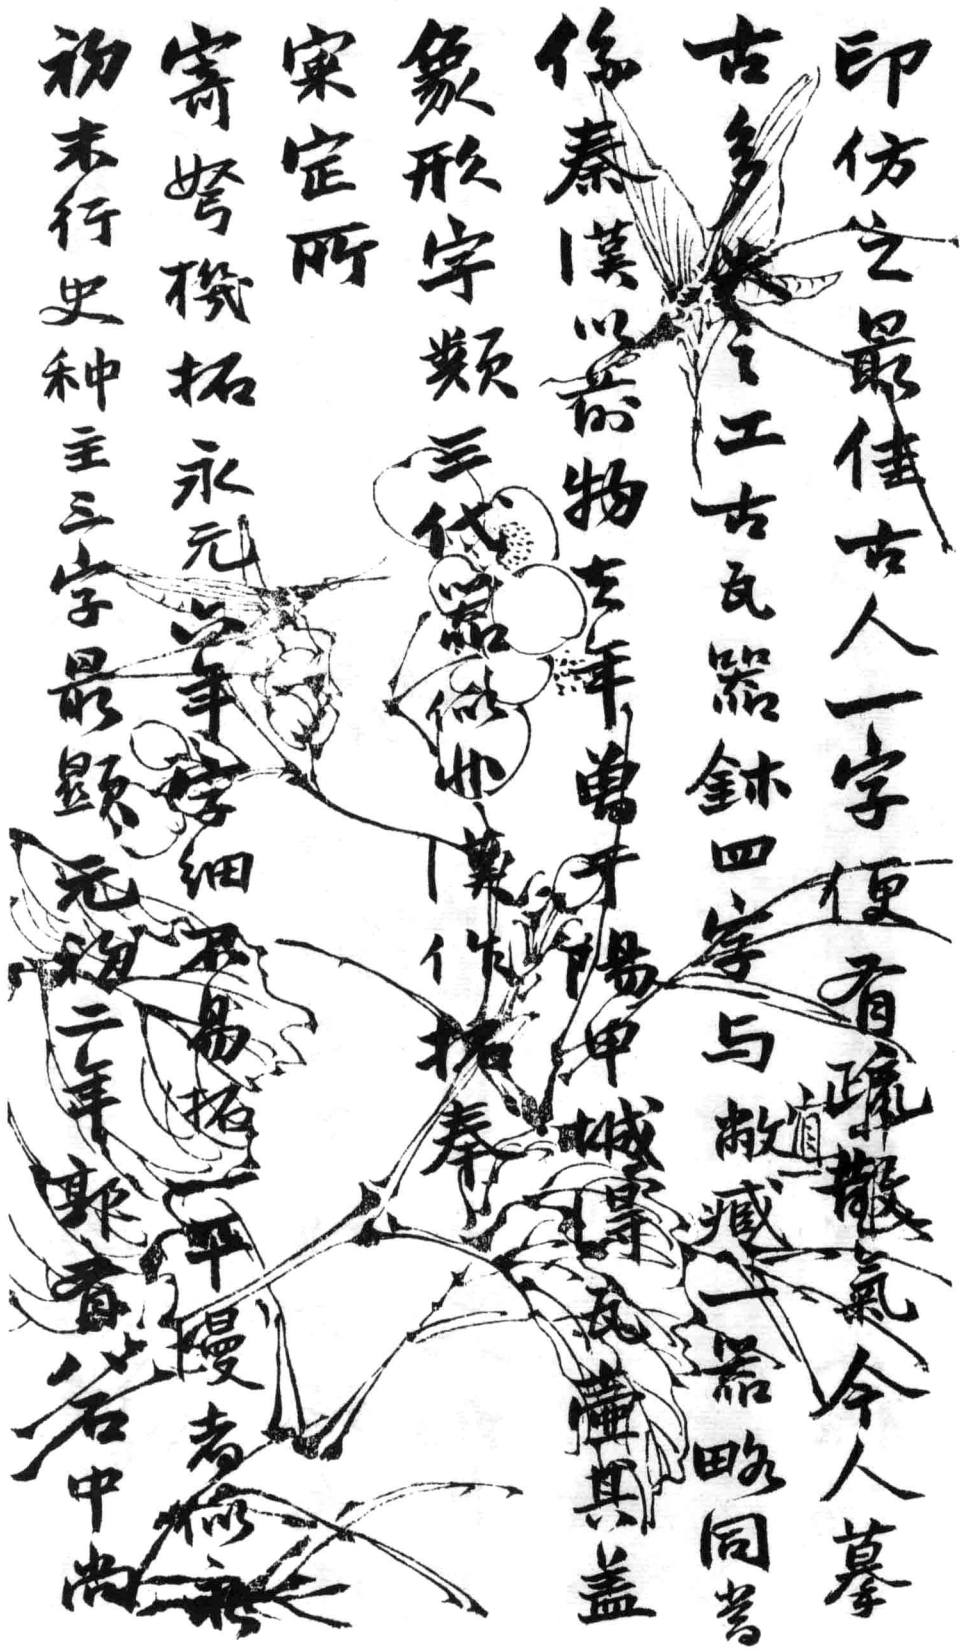 印仿之最佳古人一字便有疏散氣今人摹
古多失之工古瓦器鉢四字与敝臧一器略同當
係秦漢以前物去年曾于陽甲城得瓦蓋其盖
象形字類三代器似非漢作拓奉
寀定所
寄弩機拓永元六年字細不易拓一平漫者似永
初末行史种主三字最顯元初二年郭首若中尚
宜